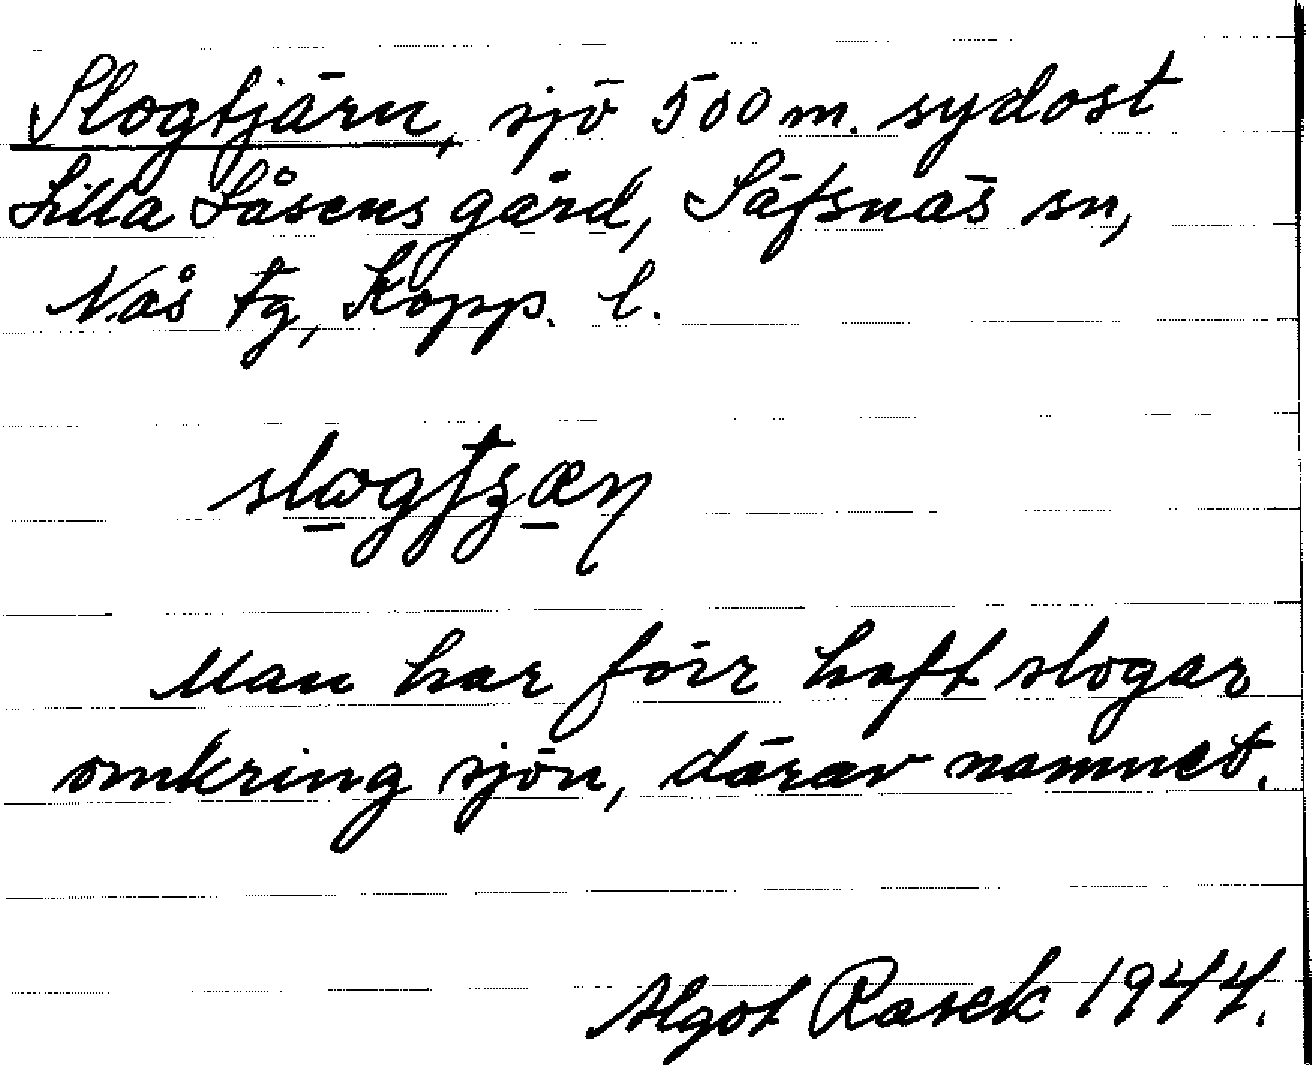 Slogtjärn, sjö 500 m. sydost
Lilla Låsens gård, Säfsnäs sn,
Nås tg, Kopp. l.
Man har förr haft slogar
omkring sjön, därav namnet.
Algot Rasek 1944.